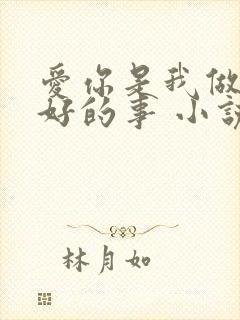 愛你是我做
好的事 小說
林月如